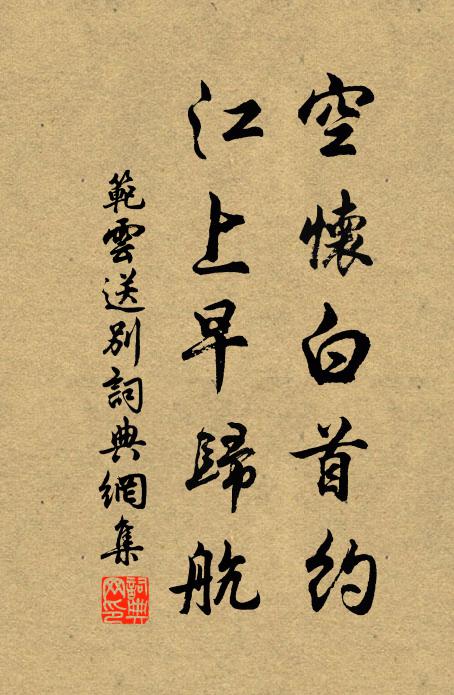 空懷白首約
江上早歸航
範雲送別詞典網集
詞典
网印